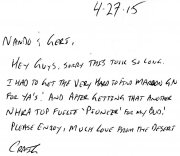 4-27-15
Nando & Geri,
Hey Guys, sorry this took so long.
I had to get the very hard to find Maroon GN
for ya's! And after getting that another
NHRA Top Fueler "Pioneer" for my bud!
Please enjoy, much love from the desert
Craig